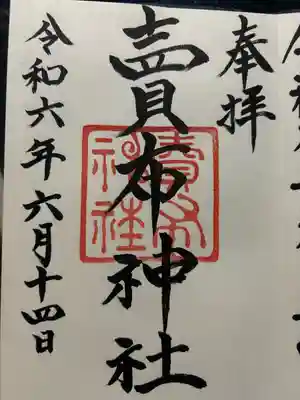 奉拝
賣布神社
賣布
神社
令和六年六月十四日